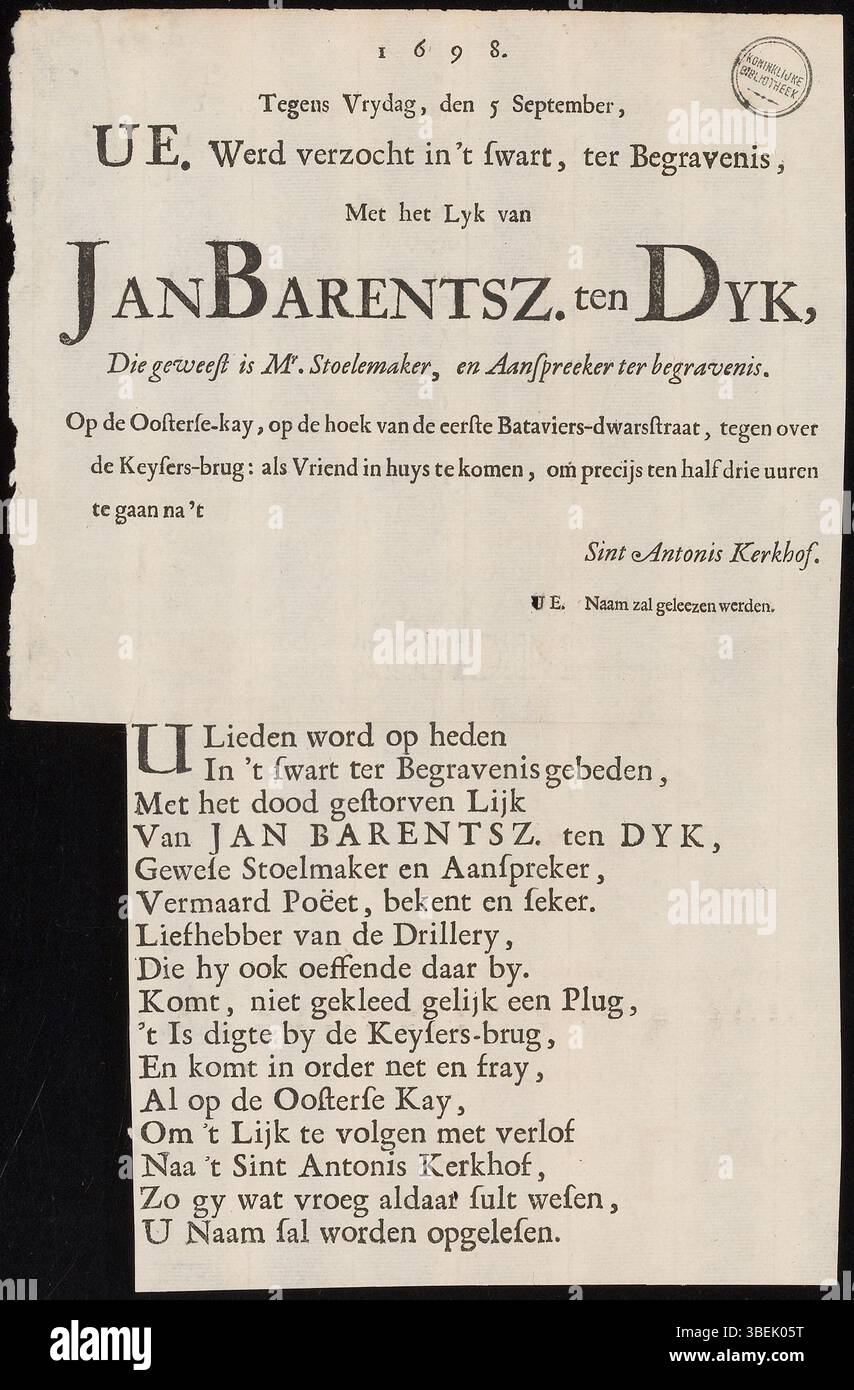 1 6 9 8.
KONINKLIJKE
BIBLIOTHEEK
Tegens Vrydag, den 5 September,
UE. Werd verzocht in 't ſwart, ter Begravenis,
Met het Lyk van
JAN BARENTSZ. ten DYK,
Die geweeſt is Mr. Stoelemaker, en Aanſpreeker ter begravenis.
Op de Ooſterſe-kay, op de hoek van de eerſte Bataviers-dwarsſtraat, tegen over
de Keyſers-brug: als Vriend in huys te komen, om̃ precijs ten half drie uuren
te gaan na 't
Sint Antonis Kerkhof.
UE. Naam zal geleezen werden.
U Lieden word op heden
In 't ſwart ter Begravenis gebeden,
Met het dood geſtorven Lijk
Van JAN BARENTSZ. ten DYK,
Geweſe Stoelmaker en Aanſpreker,
Vermaard Poëet, bekent en ſeker.
Liefhebber van de Drillery,
Die hy ook oeffende daar by.
Komt, niet gekleed gelijk een Plug,
't Is digte by de Keyſers-brug,
En komt in order net en fray,
Al op de Ooſterſe Kay,
Om 't Lijk te volgen met verlof
Naa 't Sint Antonis Kerkhof,
Zo gy wat vroeg aldaar ſult weſen,
U Naam ſal worden opgeleſen.
alamy
alamy
Image ID: 3BEK05T
www.alamy.com